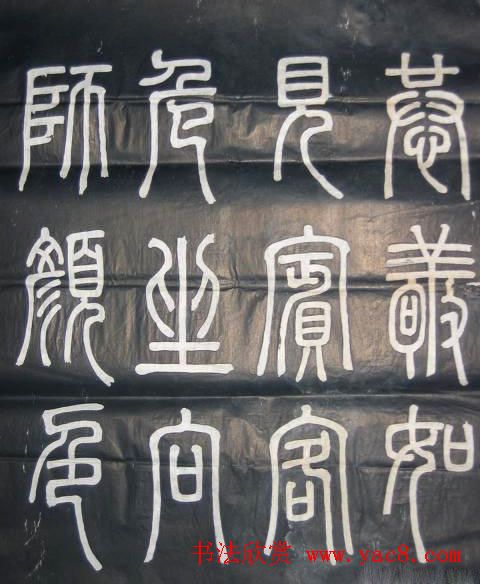 恭敬如
見賓客
危坐向
師顏色
书法欣赏 www.yac8.com